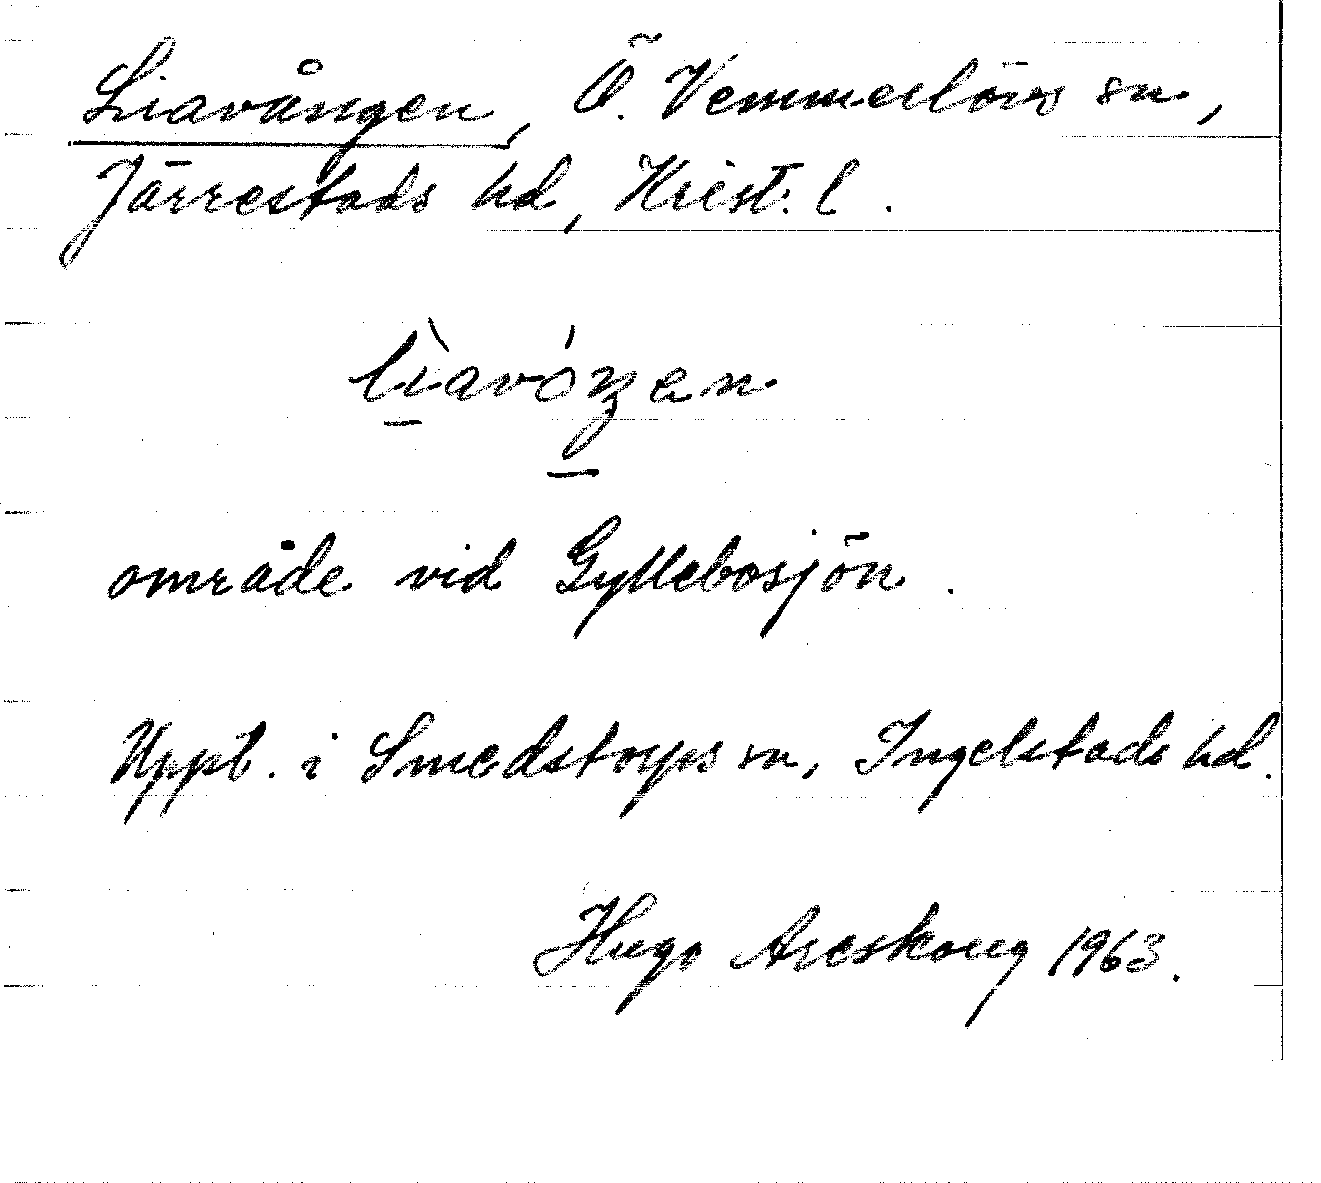 Liavången, Ö. Vemmerlövs sn,
Järrestads hd, Krist. l.
lìavóŋen
område vid Gyllebosjön.
Uppt. i Smedstorps sn, Ingelstads hd.
Hugo Areskoug 1963.